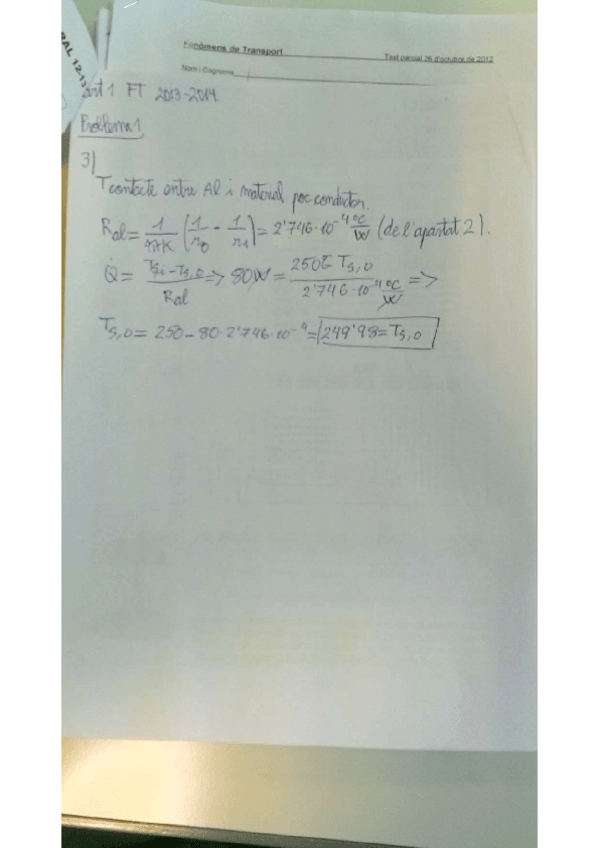 RAL 12-13
Fenòmens de Transport
Test parcial 26 d'octubre de 2012
Nom i Cognoms
Part 1 FT 2013-2014
Problema 1
3)
T contacte entre Al i material poc conductor.
Ral = 1/4πK (1/r0 - 1/r1) = 2'746·10⁻⁴ ºC/W (de l'apartat 2).
Q̇ = Ts,i - Ts,o / Ral => 80W = 250 - Ts,o / 2'746·10⁻⁴ ºC/W =>
Ts,o = 250 - 80·2'746·10⁻⁴ = 249'98 = Ts,o